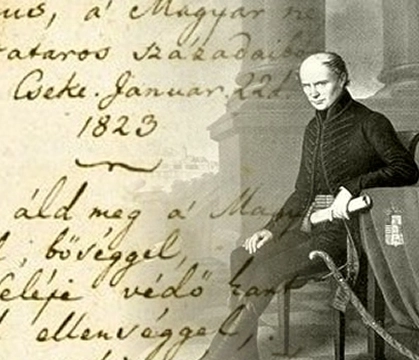 a' Magyar
zataros századaiból
Cseke. Januar. 22d.
1823
áld meg a' Magy
bőséggel,
védő kart
ellenséggel,